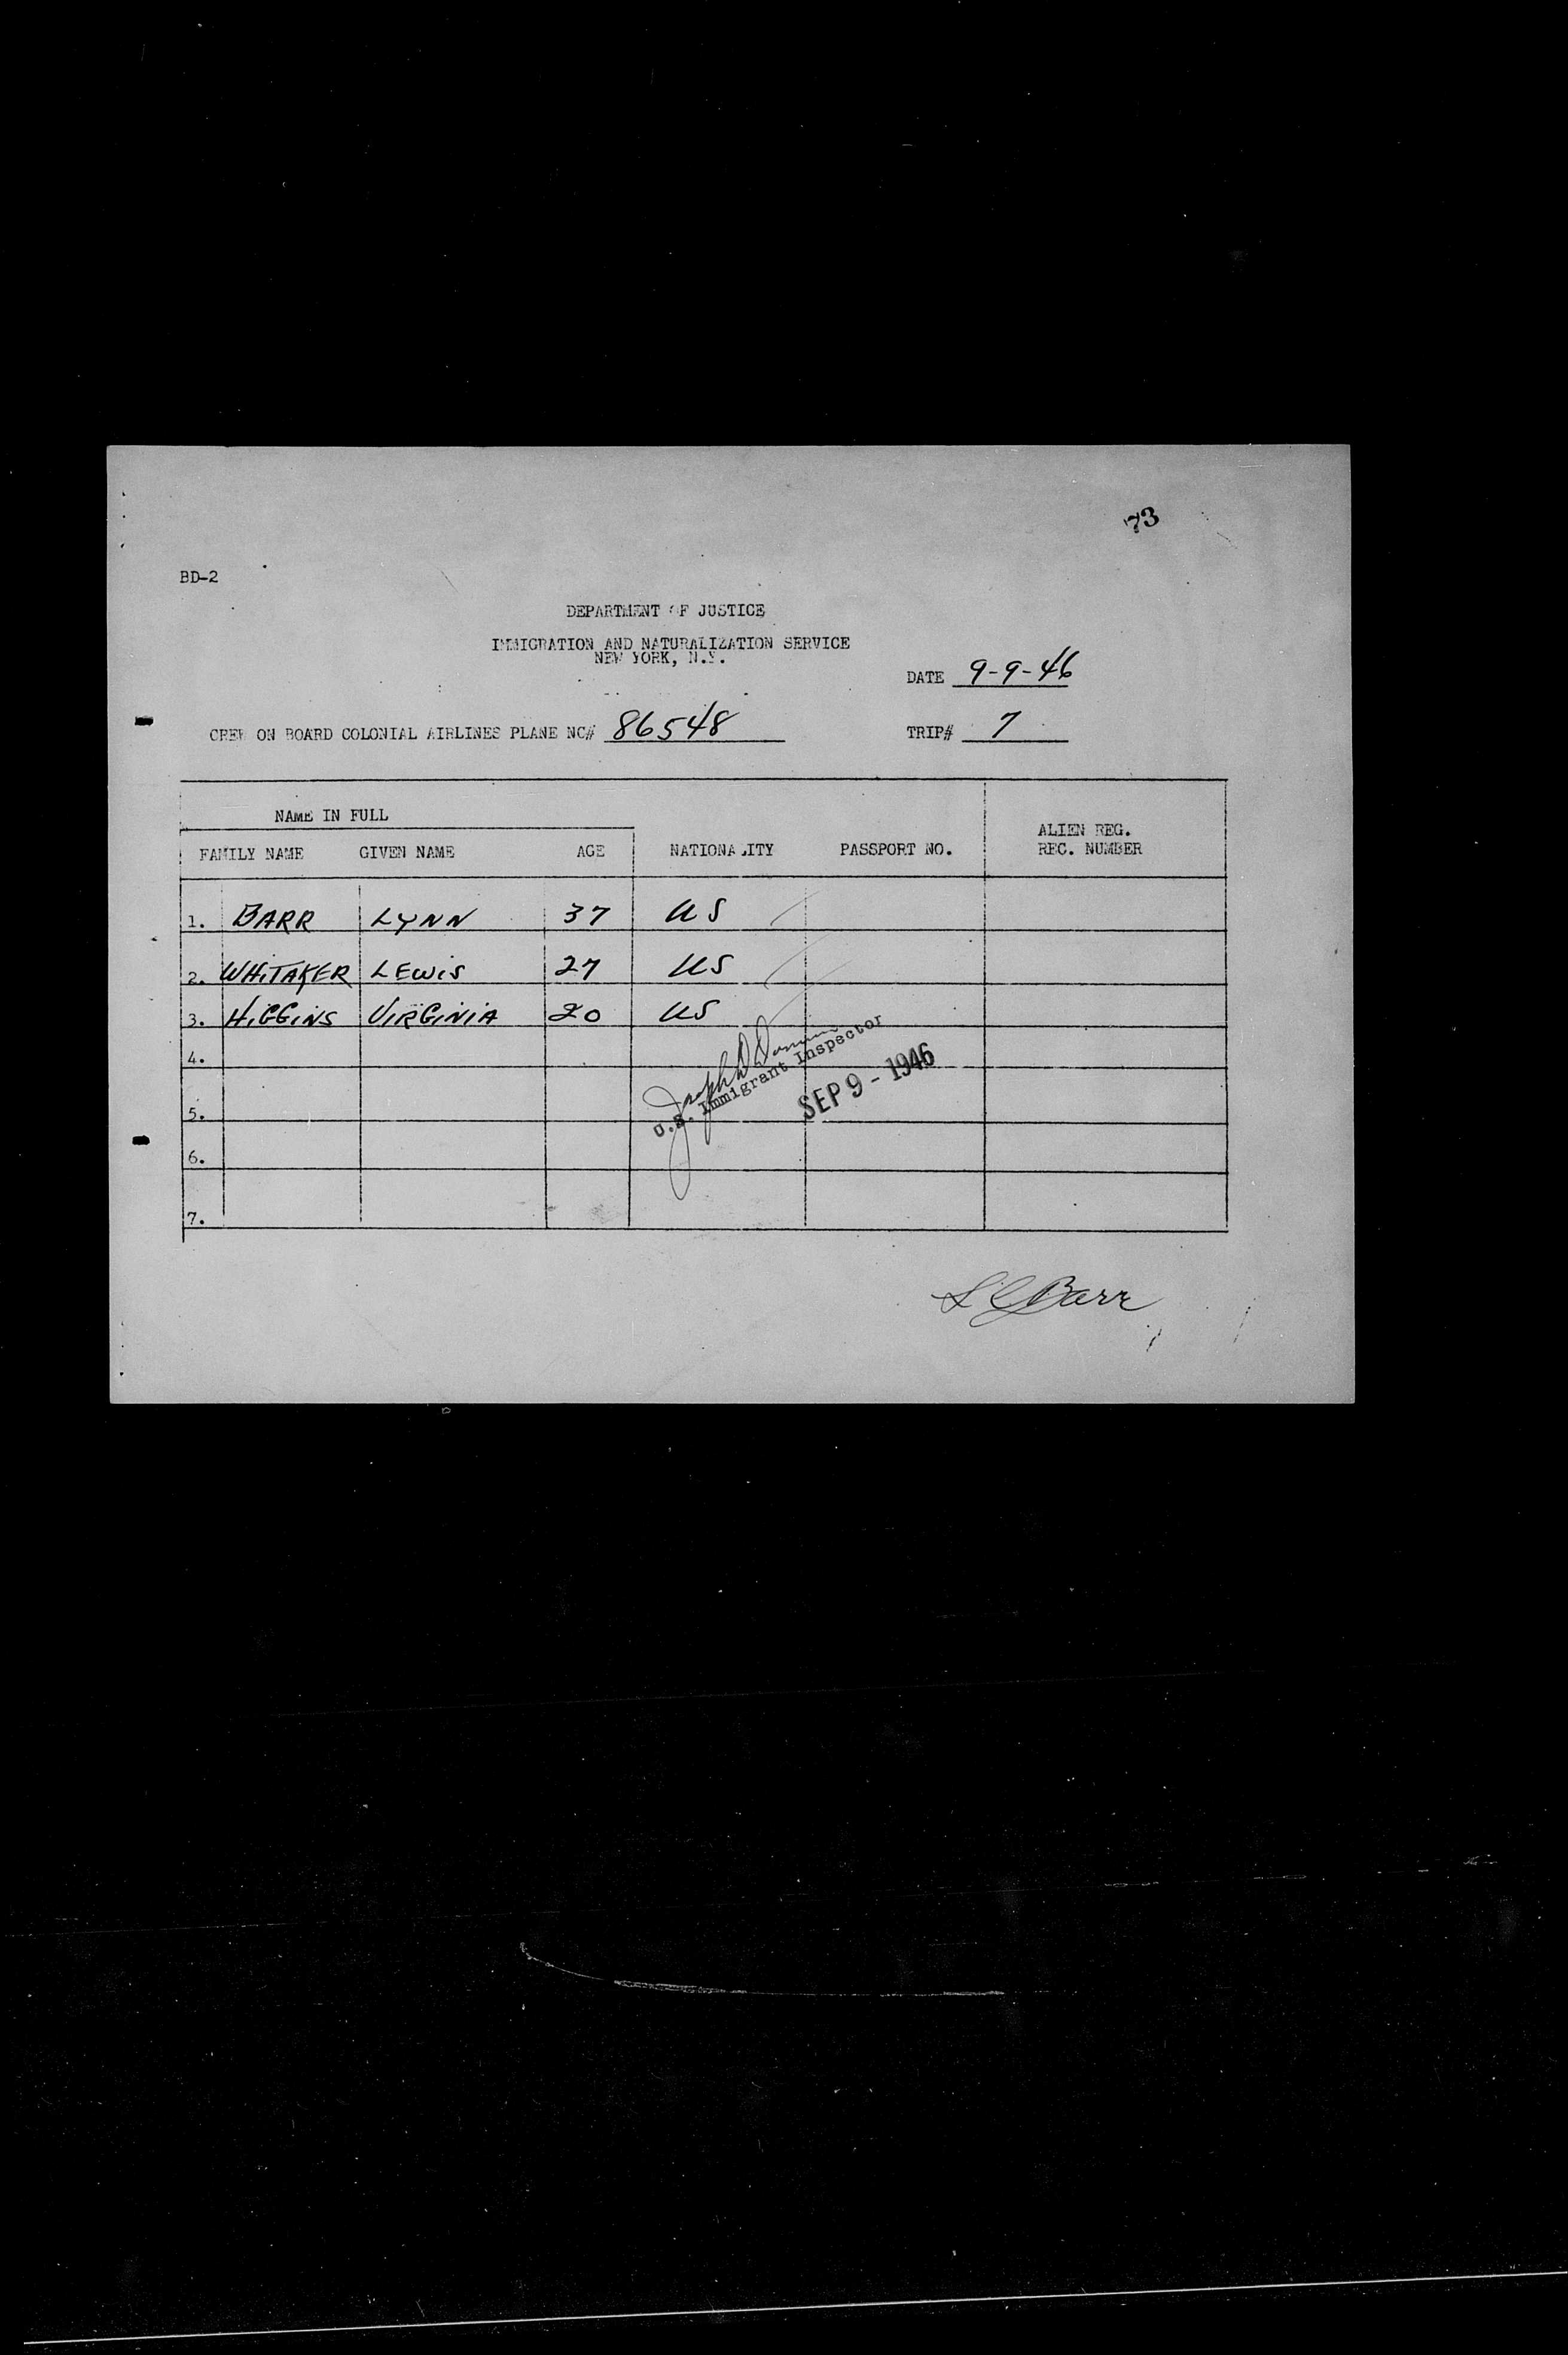 73
BD-2
DEPARTMENT OF JUSTICE
IMMIGRATION AND NATURALIZATION SERVICE
NEW YORK, N.Y.
DATE 9-9-46
CREW ON BOARD COLONIAL AIRLINES PLANE NC# 86548 TRIP# 7
NAME IN FULL
FAMILY NAME GIVEN NAME AGE NATIONALITY PASSPORT NO. ALIEN REG. REC. NUMBER
1. BARR LYNN 37 US
2. WHITAKER LEWIS 27 US
3. HIGGINS VIRGINIA 20 US
4.
Joseph D
U.S. Immigrant Inspector
SEP 9 - 1946
5.
6.
7.
L C Barr